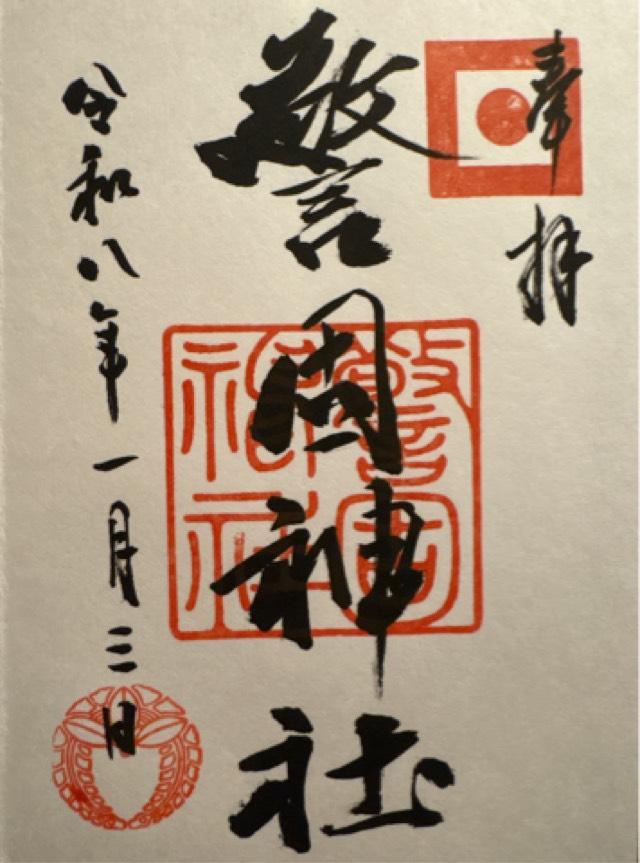 奉拝
警固神社
警固神社
令和八年一月三日